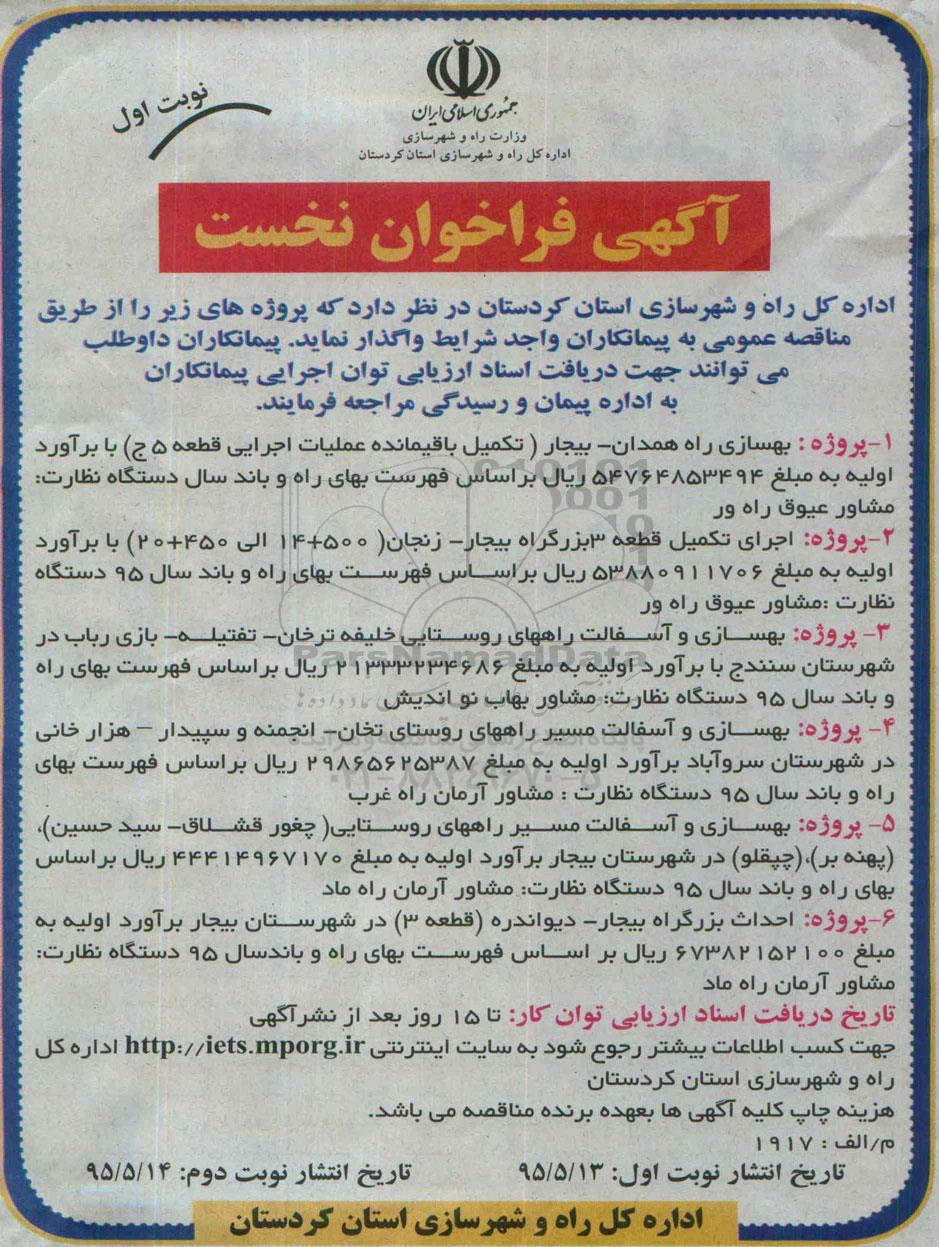 نوبت اول
جمهوری اسلامی ایران
وزارت راه و شهرسازی
اداره کل راه و شهرسازی استان کردستان
آگهی فراخوان نخست
اداره کل راه و شهرسازی استان کردستان در نظر دارد که پروژه های زیر را از طریق
مناقصه عمومی به پیمانکاران واجد شرایط واگذار نماید. پیمانکاران داوطلب
می توانند جهت دریافت اسناد ارزیابی توان اجرایی پیمانکاران
به اداره پیمان و رسیدگی مراجعه فرمایند.
۱-پروژه : بهسازی راه همدان- بیجار ( تکمیل باقیمانده عملیات اجرایی قطعه ۵ ج) با برآورد
اولیه به مبلغ ۵۴۷۶۴۸۵۳۴۹۴ ریال براساس فهرست بهای راه و باند سال دستگاه نظارت:
مشاور عیوق راه ور
۲-پروژه: اجرای تکمیل قطعه ۳بزرگراه بیجار- زنجان( ۵۰۰+۱۴ الی ۴۵۰+۲۰) با برآورد
اولیه به مبلغ ۵۳۸۸۰۹۱۱۷۰۶ ریال براساس فهرست بهای راه و باند سال ۹۵ دستگاه
نظارت :مشاور عیوق راه ور
۳- پروژه: بهسازی و آسفالت راههای روستایی خلیفه ترخان- تفتیله- بازی رباب در
شهرستان سنندج با برآورد اولیه به مبلغ ۲۱۳۳۳۲۳۴۶۸۶ ریال براساس فهرست بهای راه
و باند سال ۹۵ دستگاه نظارت: مشاور بهاب نو اندیش
۴- پروژه: بهسازی و آسفالت مسیر راههای روستای تخان- انجمنه و سپیدار – هزار خانی
در شهرستان سروآباد برآورد اولیه به مبلغ ۲۹۸۶۵۶۲۵۳۸۷ ریال براساس فهرست بهای
راه و باند سال ۹۵ دستگاه نظارت : مشاور آرمان راه غرب
۵- پروژه: بهسازی و آسفالت مسیر راههای روستایی( چغور قشلاق- سید حسین)،
(پهنه بر)،(چپقلو) در شهرستان بیجار برآورد اولیه به مبلغ ۴۴۴۱۴۹۶۷۱۷۰ ریال براساس
بهای راه و باند سال ۹۵ دستگاه نظارت: مشاور آرمان راه ماد
۶-پروژه: احداث بزرگراه بیجار- دیواندره (قطعه ۳) در شهرستان بیجار برآورد اولیه به
مبلغ ۶۷۳۸۲۱۵۲۱۰۰ ریال بر اساس فهرست بهای راه و باندسال ۹۵ دستگاه نظارت:
مشاور آرمان راه ماد
تاریخ دریافت اسناد ارزیابی توان کار: تا ۱۵ روز بعد از نشرآگهی
جهت کسب اطلاعات بیشتر رجوع شود به سایت اینترنتی http://iets.mporg.ir اداره کل
راه و شهرسازی استان کردستان
هزینه چاپ کلیه آگهی ها بعهده برنده مناقصه می باشد.
م/الف : ۱۹۱۷
تاریخ انتشار نوبت اول: ۹۵/۵/۱۳ تاریخ انتشار نوبت دوم: ۹۵/۵/۱۴
اداره کل راه و شهرسازی استان کردستان
ParsNamadData